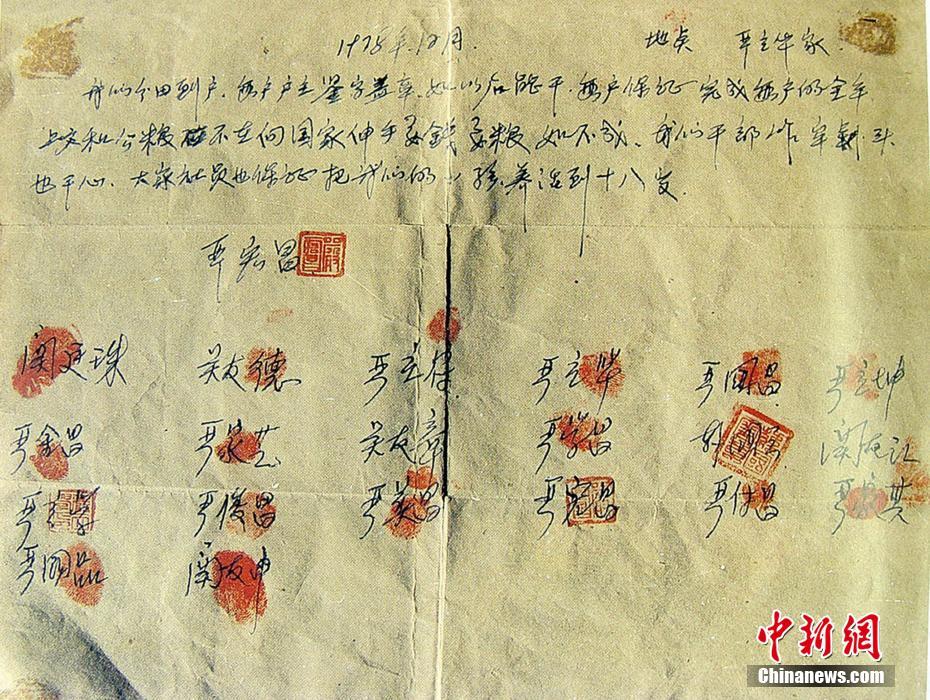 1978年.12月. 地点 严立华家.
我们分田到户.每户户主鉴字盖章.如以后能干.每户保证完成每户的全年
上交和公粮不在向国家伸手要钱要粮.如不成.我们干部作牢刹头
也干心.大家社员也保证把我们的小孩养活到十八岁.
严宏昌
关廷珠 关友德 严立符 严立华 严国昌 严立坤
严金昌 严家芝 关友章 严学昌 韩国云 关友江
严立学 严俊昌 严美昌 严宏昌 严付昌 严家其
严国品 关友申
中新網
Chinanews.com